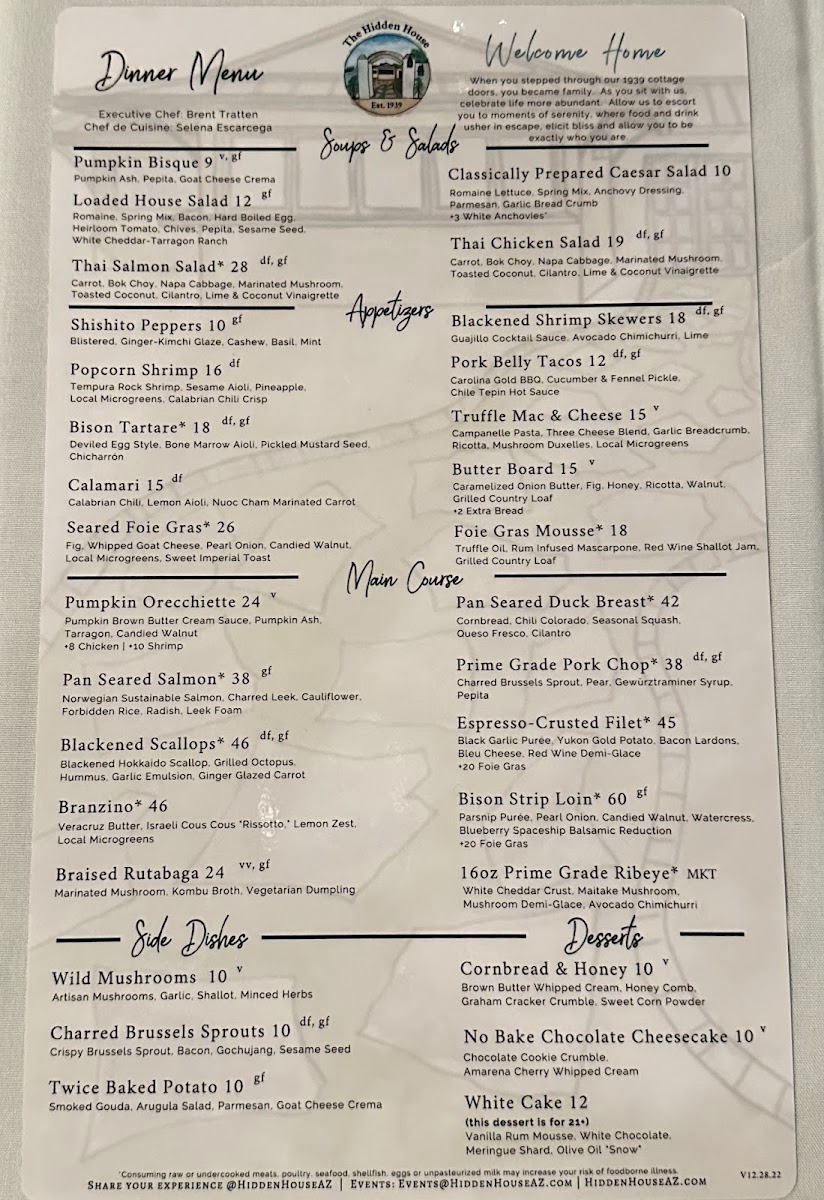 Dinner Menu
Executive Chef: Brent Tratten
Chef de Cuisine: Selena Escarcega
The Hidden House
Est. 1939
Welcome Home
When you stepped through our 1939 cottage
doors, you became family. As you sit with us,
celebrate life more abundant. Allow us to escort
you to moments of serenity, where food and drink
usher in escape, elicit bliss and allow you to be
exactly who you are.
Soups & Salads
Pumpkin Bisque 9 v, gf
Pumpkin Ash, Pepita, Goat Cheese Crema
Loaded House Salad 12 gf
Romaine, Spring Mix, Bacon, Hard Boiled Egg,
Heirloom Tomato, Chives, Pepita, Sesame Seed,
White Cheddar-Tarragon Ranch
Thai Salmon Salad* 28 df, gf
Carrot, Bok Choy, Napa Cabbage, Marinated Mushroom,
Toasted Coconut, Cilantro, Lime & Coconut Vinaigrette
Classically Prepared Caesar Salad 10
Romaine Lettuce, Spring Mix, Anchovy Dressing,
Parmesan, Garlic Bread Crumb
+3 White Anchovies*
Thai Chicken Salad 19 df, gf
Carrot, Bok Choy, Napa Cabbage, Marinated Mushroom,
Toasted Coconut, Cilantro, Lime & Coconut Vinaigrette
Appetizers
Shishito Peppers 10 gf
Blistered, Ginger-Kimchi Glaze, Cashew, Basil, Mint
Popcorn Shrimp 16 df
Tempura Rock Shrimp, Sesame Aioli, Pineapple,
Local Microgreens, Calabrian Chili Crisp
Bison Tartare* 18 df, gf
Deviled Egg Style, Bone Marrow Aioli, Pickled Mustard Seed,
Chicharrón
Calamari 15 df
Calabrian Chili, Lemon Aioli, Nuoc Cham Marinated Carrot
Seared Foie Gras* 26
Fig, Whipped Goat Cheese, Pearl Onion, Candied Walnut,
Local Microgreens, Sweet Imperial Toast
Blackened Shrimp Skewers 18 df, gf
Guajillo Cocktail Sauce, Avocado Chimichurri, Lime
Pork Belly Tacos 12 df, gf
Carolina Gold BBQ, Cucumber & Fennel Pickle,
Chile Tepin Hot Sauce
Truffle Mac & Cheese 15 v
Campanelle Pasta, Three Cheese Blend, Garlic Breadcrumb,
Ricotta, Mushroom Duxelles, Local Microgreens
Butter Board 15 v
Caramelized Onion Butter, Fig, Honey, Ricotta, Walnut,
Grilled Country Loaf
+2 Extra Bread
Foie Gras Mousse* 18
Truffle Oil, Rum Infused Mascarpone, Red Wine Shallot Jam,
Grilled Country Loaf
Main Course
Pumpkin Orecchiette 24 v
Pumpkin Brown Butter Cream Sauce, Pumpkin Ash,
Tarragon, Candied Walnut
+8 Chicken | +10 Shrimp
Pan Seared Salmon* 38 gf
Norwegian Sustainable Salmon, Charred Leek, Cauliflower,
Forbidden Rice, Radish, Leek Foam
Blackened Scallops* 46 df, gf
Blackened Hokkaido Scallop, Grilled Octopus,
Hummus, Garlic Emulsion, Ginger Glazed Carrot
Branzino* 46
Veracruz Butter, Israeli Cous Cous "Rissotto," Lemon Zest,
Local Microgreens
Braised Rutabaga 24 vv, gf
Marinated Mushroom, Kombu Broth, Vegetarian Dumpling
Pan Seared Duck Breast* 42
Cornbread, Chili Colorado, Seasonal Squash,
Queso Fresco, Cilantro
Prime Grade Pork Chop* 38 df, gf
Charred Brussels Sprout, Pear, Gewürztraminer Syrup,
Pepita
Espresso-Crusted Filet* 45
Black Garlic Purée, Yukon Gold Potato, Bacon Lardons,
Bleu Cheese, Red Wine Demi-Glace
+20 Foie Gras
Bison Strip Loin* 60 gf
Parsnip Purée, Pearl Onion, Candied Walnut, Watercress,
Blueberry Spaceship Balsamic Reduction
+20 Foie Gras
16oz Prime Grade Ribeye* MKT
White Cheddar Crust, Maitake Mushroom,
Mushroom Demi-Glace, Avocado Chimichurri
Side Dishes
Wild Mushrooms 10 v
Artisan Mushrooms, Garlic, Shallot, Minced Herbs
Charred Brussels Sprouts 10 df, gf
Crispy Brussels Sprout, Bacon, Gochujang, Sesame Seed
Twice Baked Potato 10 gf
Smoked Gouda, Arugula Salad, Parmesan, Goat Cheese Crema
Desserts
Cornbread & Honey 10 v
Brown Butter Whipped Cream, Honey Comb,
Graham Cracker Crumble, Sweet Corn Powder
No Bake Chocolate Cheesecake 10 v
Chocolate Cookie Crumble,
Amarena Cherry Whipped Cream
White Cake 12
(this dessert is for 21+)
Vanilla Rum Mousse, White Chocolate,
Meringue Shard, Olive Oil "Snow"
*Consuming raw or undercooked meats, poultry, seafood, shellfish, eggs or unpasteurized milk may increase your risk of foodborne illness.
V12.28.22
Share your experience @HiddenHouseAZ | Events: Events@HiddenHouseAZ.com | HiddenHouseAZ.com